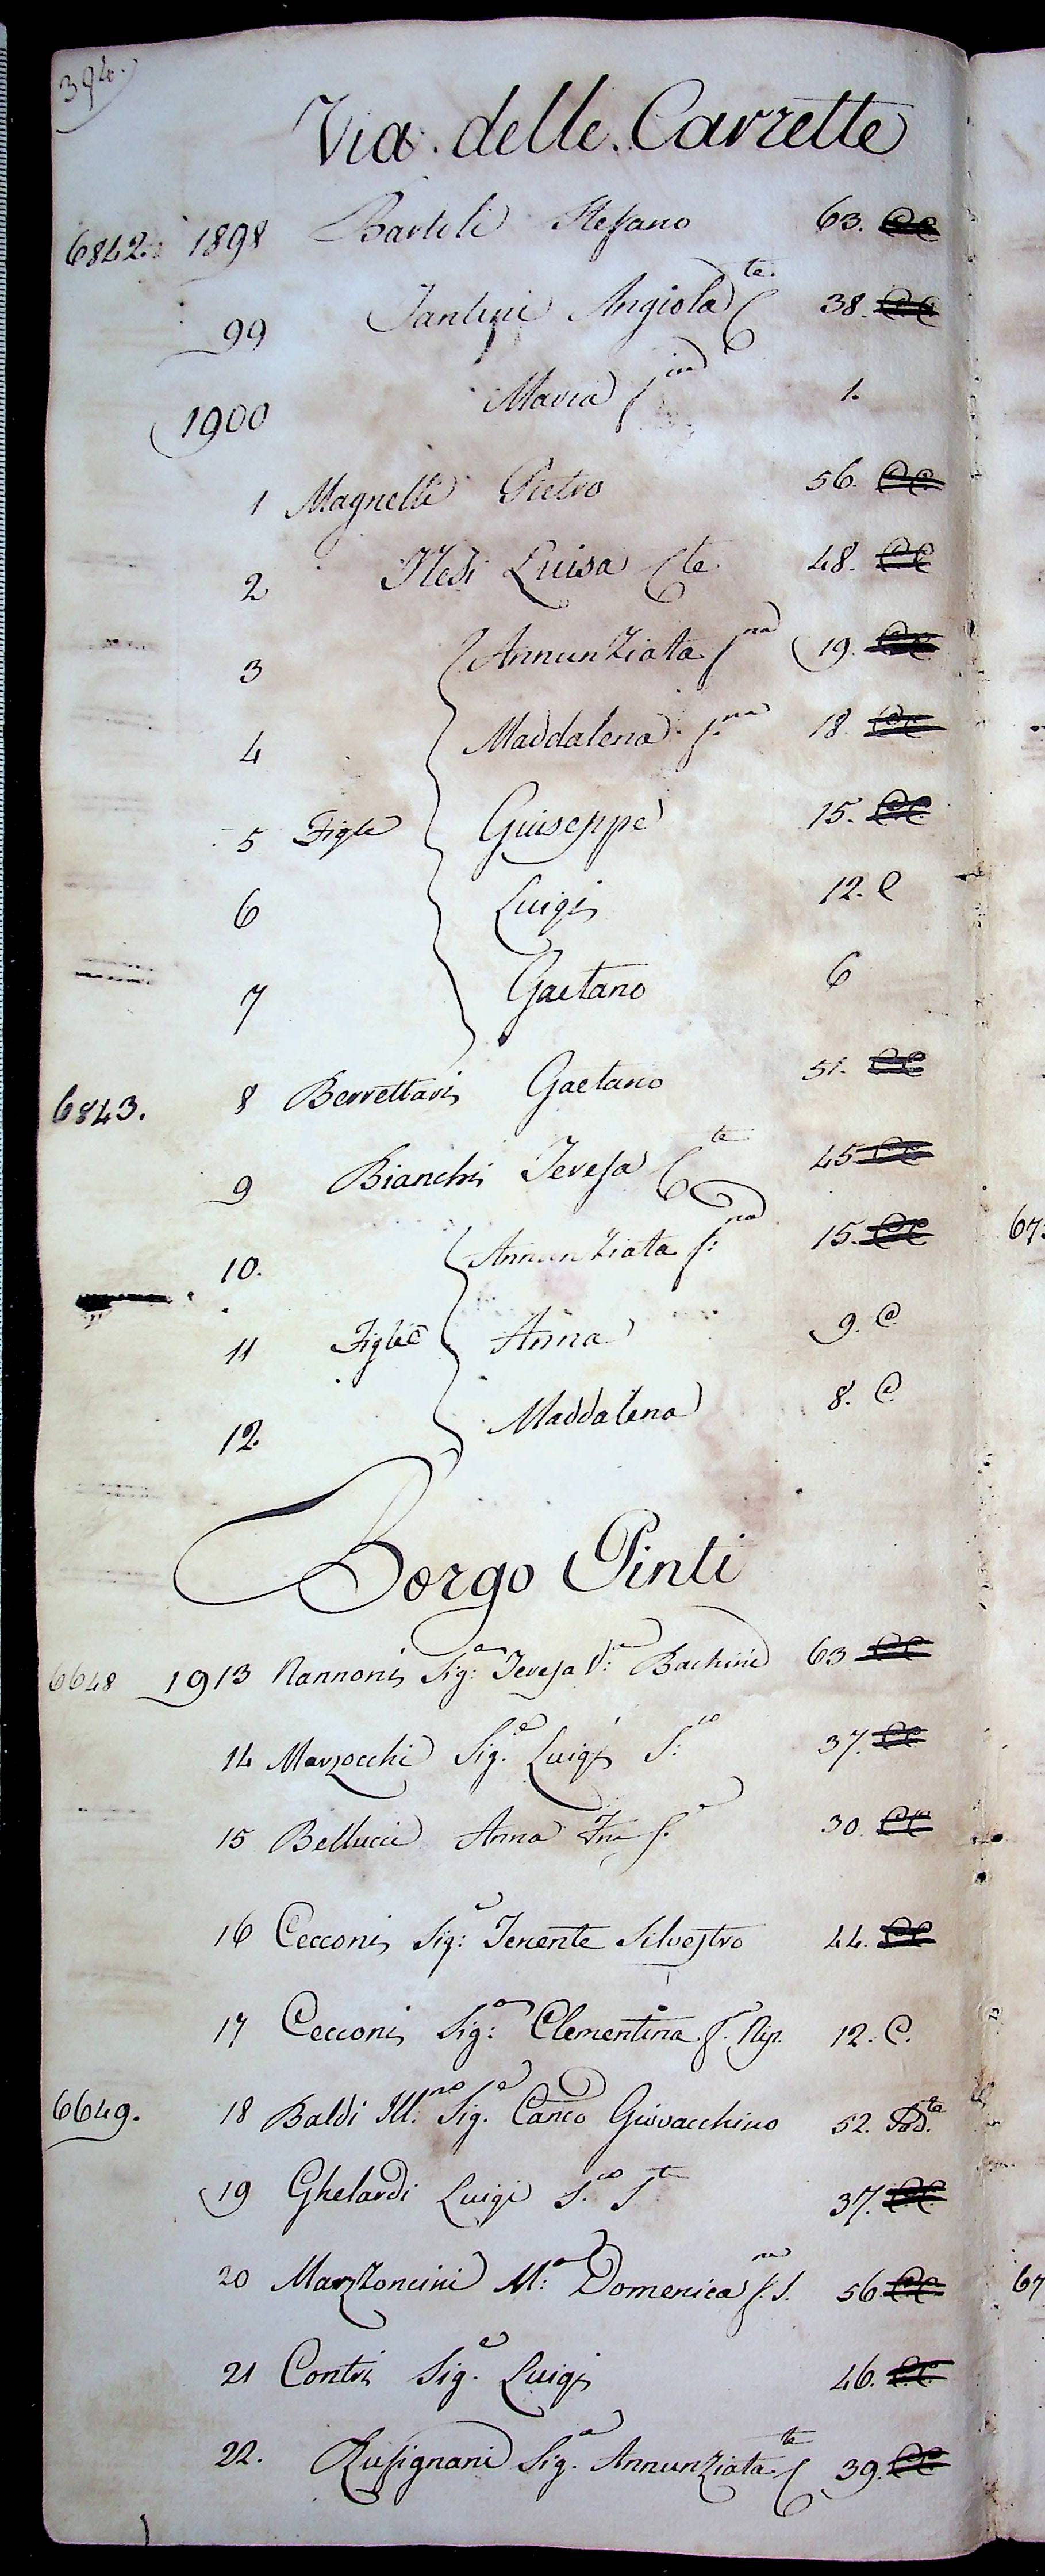 394.
Via delle Carrette
6842. 1898 Bartoli Stefano 63. CC
99 Santini Angiola Cte. 38. CC
1900 Maria fina 1.
1 Magnelli Pietro 56. CC
2 Nesi Luisa Cte 48. CC
3 Annunziata fna 19. CC
4 Maddalena f.na 18. CC
5 Figli Giuseppe 15. CC
6 Luigi 12. C
7 Gaetano 6
6843. 8 Berrettari Gaetano 51. CC
9 Bianchi Teresa Cte 45 CC
10. Annunziata f:na 15. CC
11 Figlie Anna 9. C
12. Maddalena 8. C
Borgo Pinti
6648 1913 Nannoni Sig:a Teresa V:a Bachini 63 CC
14 Marzocchi Sig.e Luigi S:co 37. CC
15 Bellucci Anna f. 30 CC
16 Cecconi Sig:e Tenente Silvestro 44. CC
17 Cecconi Sig:a Clementina f. Nip. 12. C.
6649. 18 Baldi Ill.mo Sig.e Canco Giovacchino 52. Sad.te
19 Ghelardi Luigi S.co Ste 37. CC
20 Marzoncini M:a Domenica f.na S. 56 CC
21 Contri Sig.e Luigi 46. CC
22. Rusignani Sig.a Annunziata Cte 39. CC